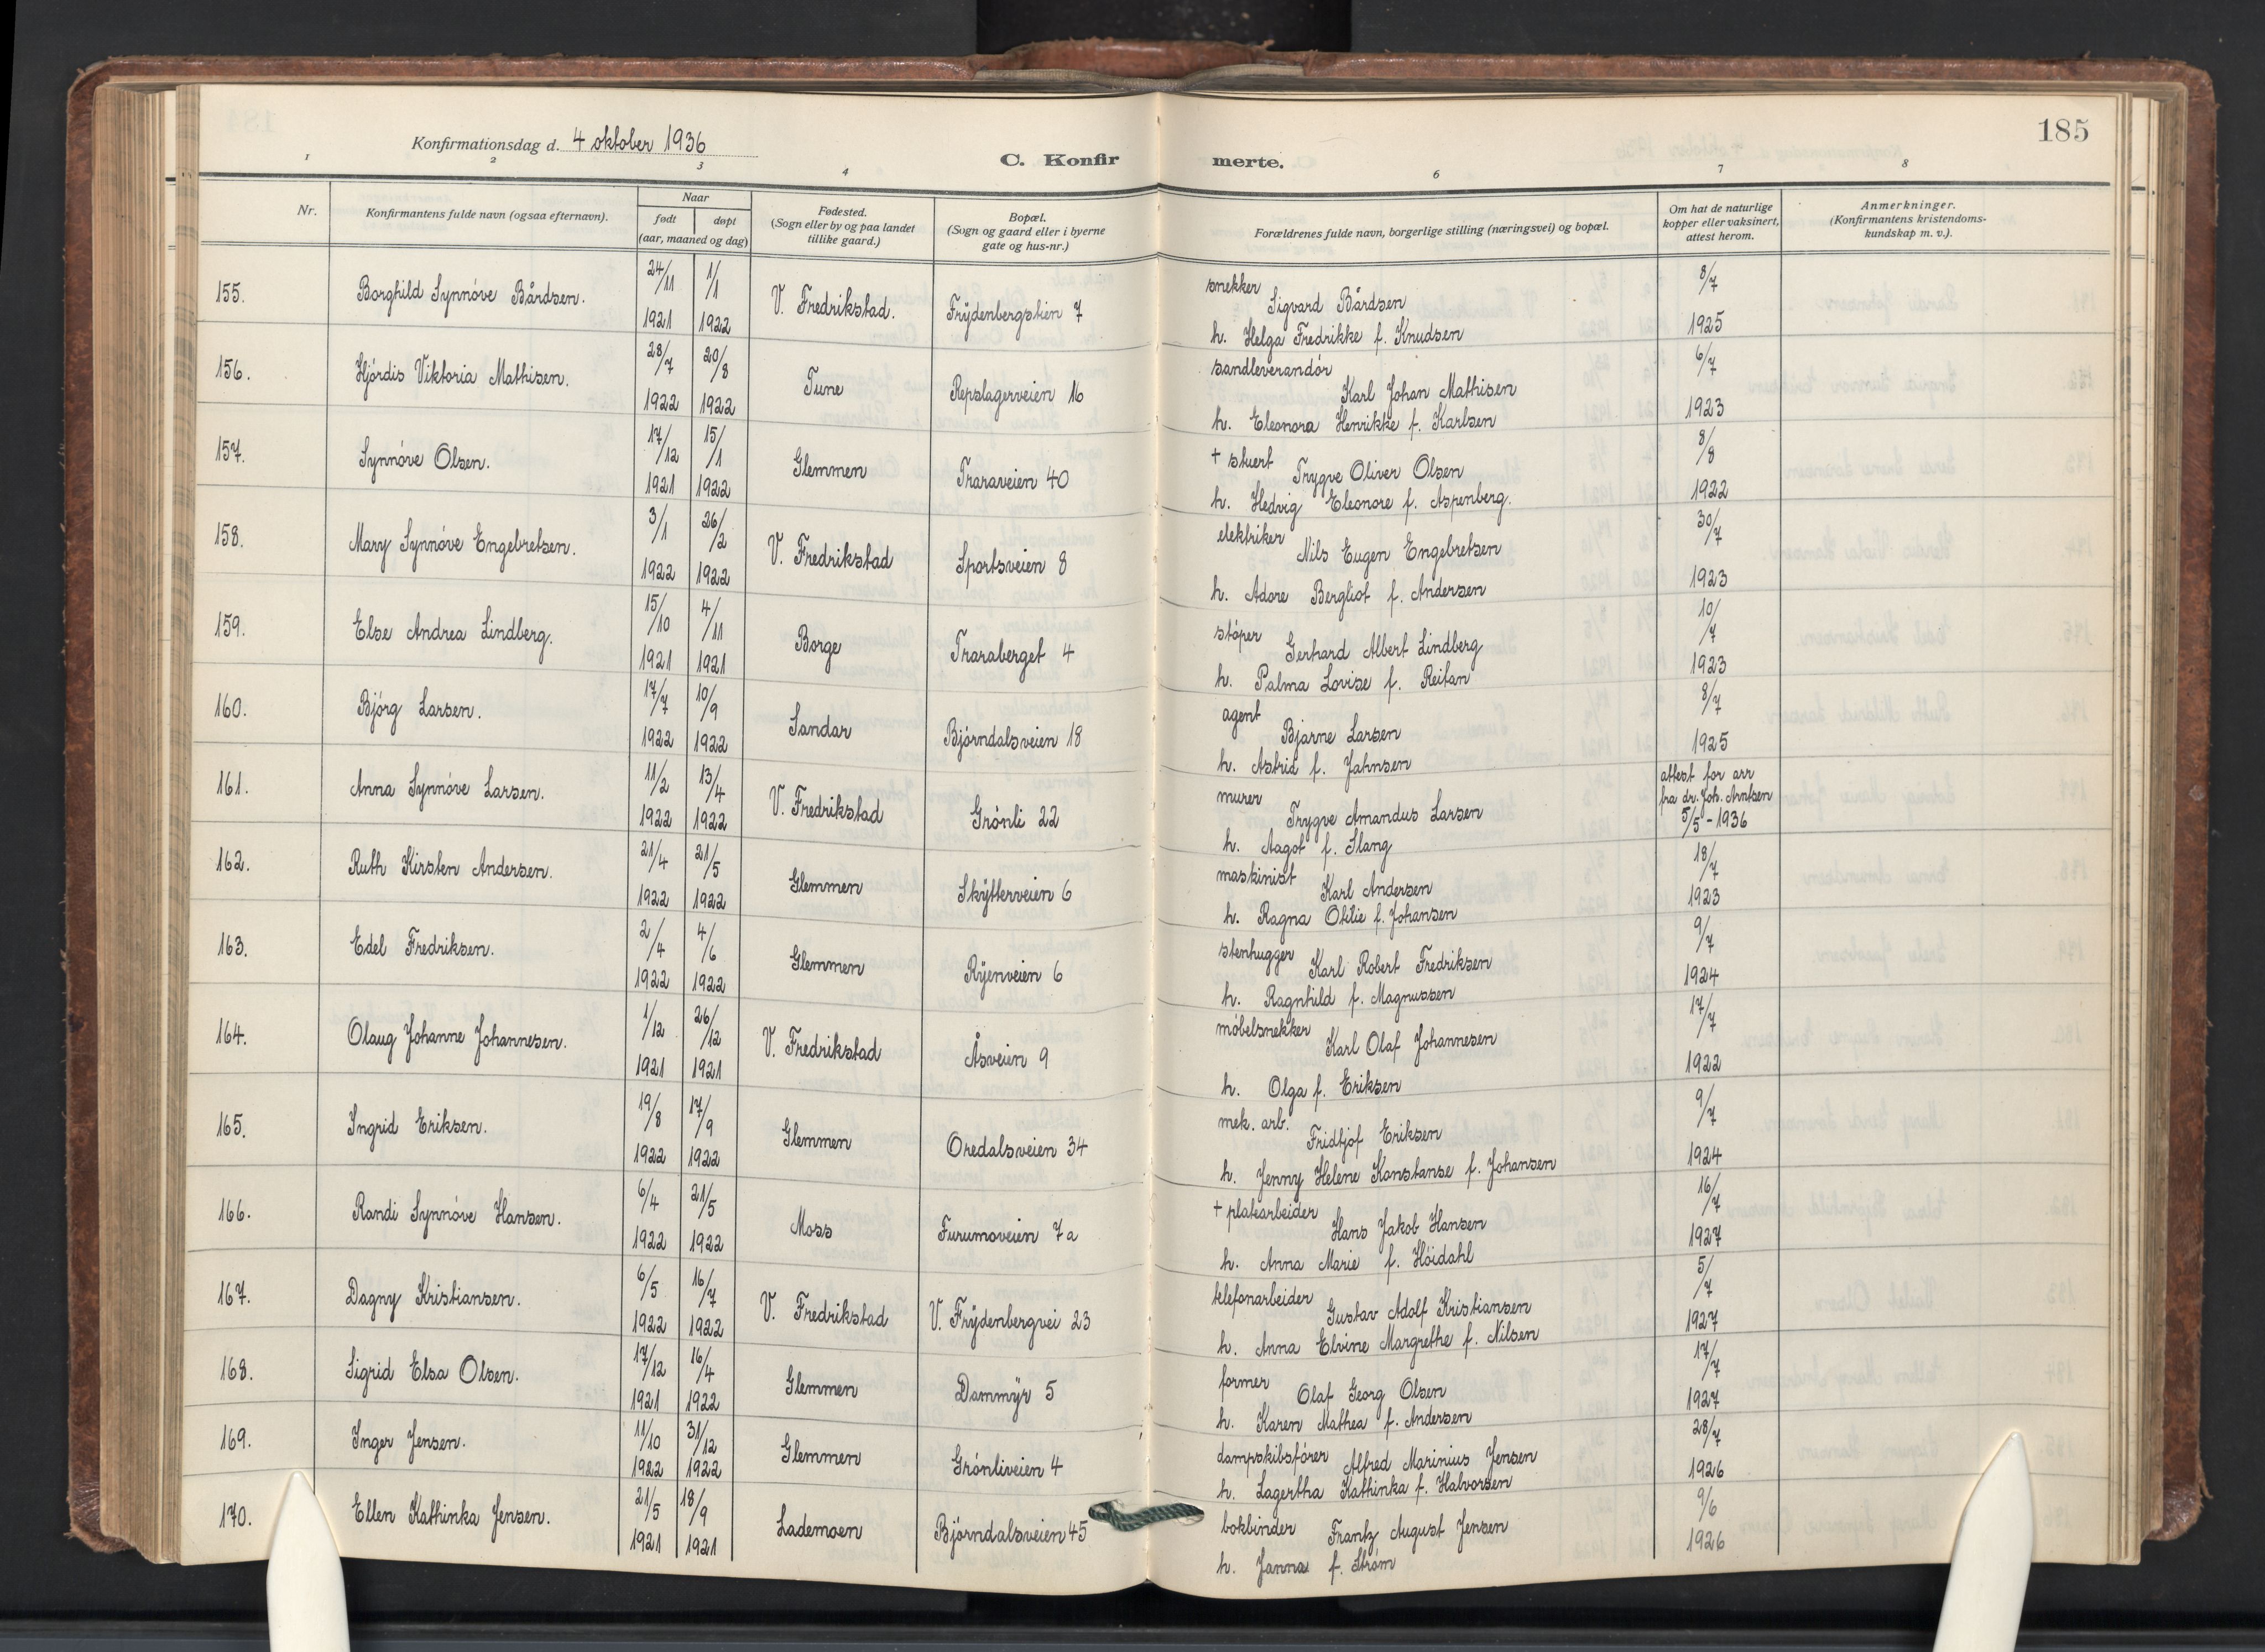 185
Konfirmationsdag d. 4 oktober 1936
C. Konfirmerte.
1 2 3 4 6 7 8
Nr.
Konfirmantens fulde navn (ogsaa efternavn).
Naar
født døpt
(aar, maaned og dag)
Fødested.
(Sogn eller by og paa landet
tillike gaard.)
Bopæl.
(Sogn og gaard eller i byerne
gate og hus-nr.)
Forældrenes fulde navn, borgerlige stilling (næringsvei) og bopæl.
Om hat de naturlige
kopper eller vaksinert,
attest herom.
Anmerkninger.
(Konfirmantens kristendoms-
kundskap m. v.).
155. Borghild Synnóve Bårdsen. 24/11 1921 1/1 1922 V. Fredrikstad. Frÿdenbergstien 7 snekker Sigvard Bårdsen 8/7 1925
h. Helga Fredrikke f. Knudsen
156. Hjórdis Viktoria Mathisen. 28/7 1922 20/8 1922 Tune Repslagerveien 16 sandleverandór Karl Johan Mathisen 6/7 1923
h. Eleonora Henrikke f. Karlsen
157. Synnóve Olsen. 17/12 1921 15/1 1922 Glemmen Traraveien 40 + stuert Trygve Oliver Olsen 8/8 1922
h. Hedvig Eleonore f. Aspenberg.
158. Mary Synnóve Engebretsen. 3/1 1922 26/2 1922 V. Fredrikstad Sportsveien 8 elektriker Nils Eugen Engebretsen 30/7 1923
h. Adore Bergliot f. Andersen
159. Else Andrea Lindberg. 15/10 1921 4/11 1921 Borge Traraberget 4 stóper Gerhard Albert Lindberg 10/7 1923
h. Palma Lovise f. Reitan
160. Bjórg Larsen. 17/7 1922 10/9 1922 Sandar Bjórndalsveien 18 agent Bjarne Larsen 8/7 1925
h. Astrid f. Jahnsen
161. Anna Synnóve Larsen. 11/2 1922 13/4 1922 V. Fredrikstad Grónli 22 murer Trygve Amandus Larsen attest for arr
fra dr. Joh. Arntsen
5/5 - 1936
h. Aagot f. Slang
162. Ruth Kirsten Andersen. 21/4 1922 21/5 1922 Glemmen Skÿtterveien 6 maskinist Karl Andersen 18/7 1923
h. Ragna Otilie f. Johansen
163. Edel Fredriksen. 2/4 1922 4/6 1922 Glemmen Rÿenveien 6 stenhugger Karl Robert Fredriksen 9/7 1924
h. Ragnhild f. Magnussen
164. Olaug Johanne Johannesen. 1/12 1921 26/12 1921 V. Fredrikstad Åsveien 9 móbelsnekker Karl Olaf Johannesen 17/7 1922
h. Olga f. Eriksen
165. Ingrid Eriksen. 19/8 1922 17/9 1922 Glemmen Oredalsveien 34 mek. arb. Fridtjof Eriksen 9/7 1924
h. Jenny Helene Konstanse f. Johansen
166. Randi Synnóve Hansen. 6/4 1922 21/5 1922 Moss Furumoveien 7a + platearbeider Hans Jakob Hansen 16/7 1927
h. Anna Marie f. Hóidahl
167. Dagny Kristiansen. 6/5 1922 16/7 1922 V. Fredrikstad V. Frÿdenbergvei 23 telefonarbeider Gustav Adolf Kristiansen 5/7 1927
h. Anna Elvine Margrethe f. Nilsen
168. Sigrid Elsa Olsen. 17/12 1921 16/4 1922 Glemmen Dammÿr 5 former Olaf Georg Olsen 17/7 1927
h. Karen Mathea f. Andersen
169. Inger Jensen. 11/10 1922 31/12 1922 Glemmen Grónliveien 4 dampskibsfórer Alfred Marinius Jensen 28/7 1926
h. Lagertha Kathinka f. Halvorsen
170. Ellen Kathinka Jensen. 21/5 1921 18/9 1921 Lademoen Bjórndalsveien 45 bokbinder Frantz August Jensen 9/6 1926
h. Janna f. Strøm